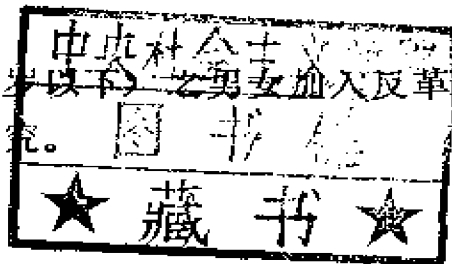 中央社会主义
岁以下）之男女加入反革
究。
图书馆
★藏书★